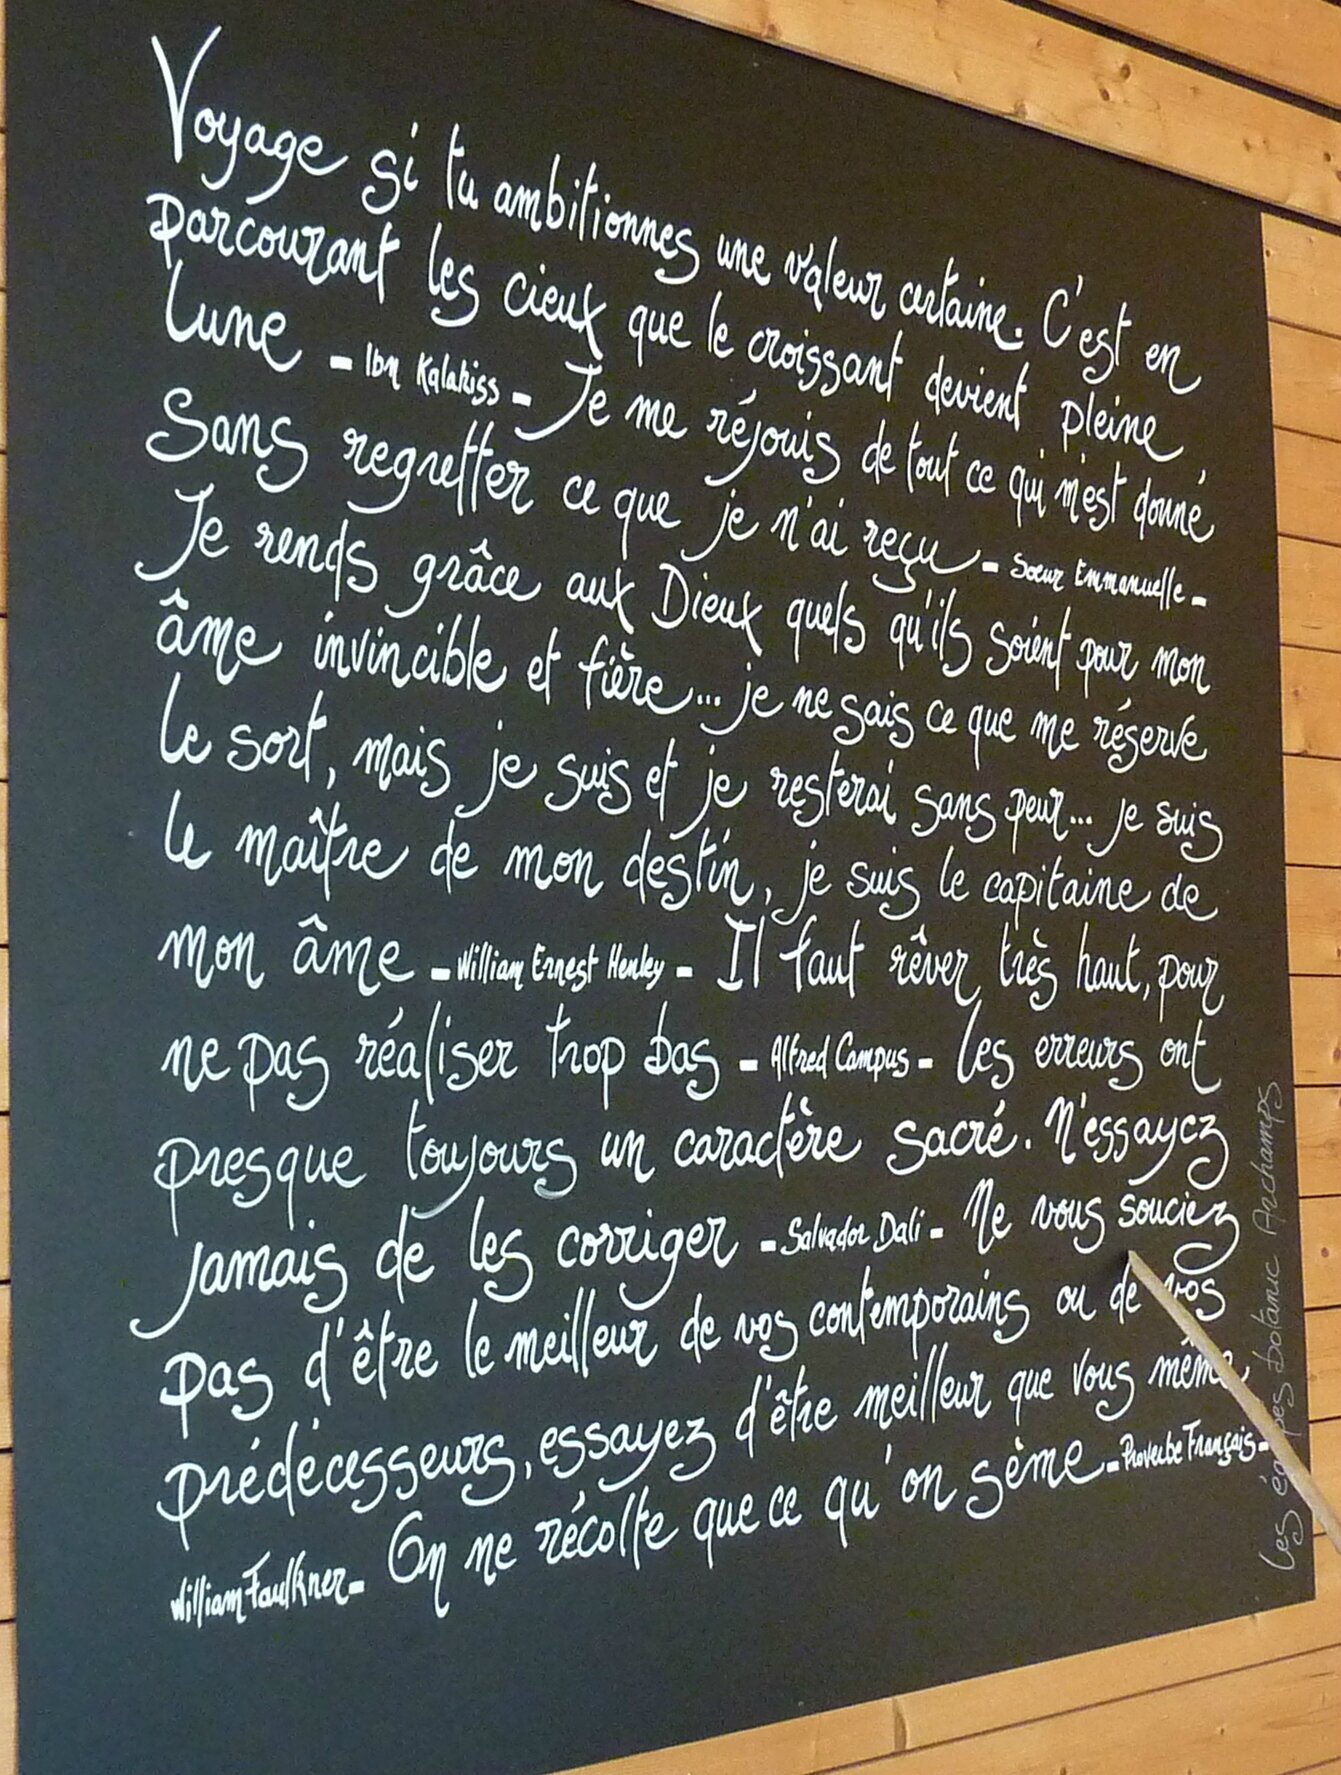 Voyage si tu ambitionnes une valeur certaine. C'est en
parcourant les cieux que le croissant devient pleine
Lune - Ibn Kalakiss - Je me réjouis de tout ce qui m'est donné
Sans regretter ce que je n'ai reçu - Soeur Emmanuelle -
Je rends grâce aux Dieux quels qu'ils soient pour mon
âme invincible et fière... je ne sais ce que me réserve
le sort, mais je suis et je resterai sans peur... je suis
le maître de mon destin, je suis le capitaine de
mon âme - William Ernest Henley - Il faut rêver très haut, pour
ne pas réaliser trop bas - Alfred Campus - Les erreurs ont
presque toujours un caractère sacré. N'essayez
jamais de les corriger - Salvador Dali - Ne vous souciez
pas d'être le meilleur de vos contemporains ou de vos
prédécesseurs, essayez d'être meilleur que vous même
William Faulkner - On ne récolte que ce qu'on sème - Proverbe Français -
Les équipes botanic Archamps